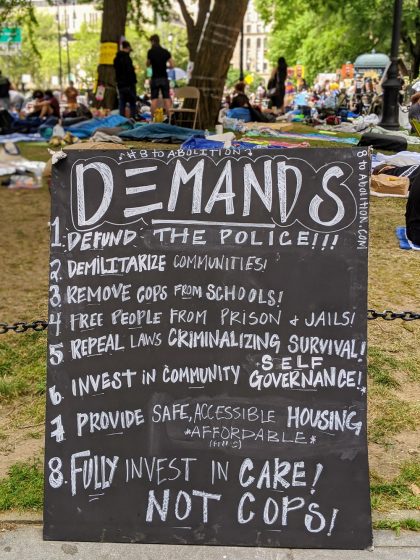 #8toABOLITION
DEMANDS
8toABOLITION.COM
1. DEFUND THE POLICE!!!
2. DEMILITARIZE COMMUNITIES!
3 REMOVE COPS FROM SCHOOLS!
4 FREE PEOPLE FROM PRISON & JAILS!
5 REPEAL LAWS CRIMINALIZING SURVIVAL!
6. INVEST IN COMMUNITY SELF
GOVERNANCE!
7 PROVIDE SAFE, ACCESSIBLE HOUSING
*AFFORDABLE*
8. FULLY INVEST IN CARE!
NOT COPS!